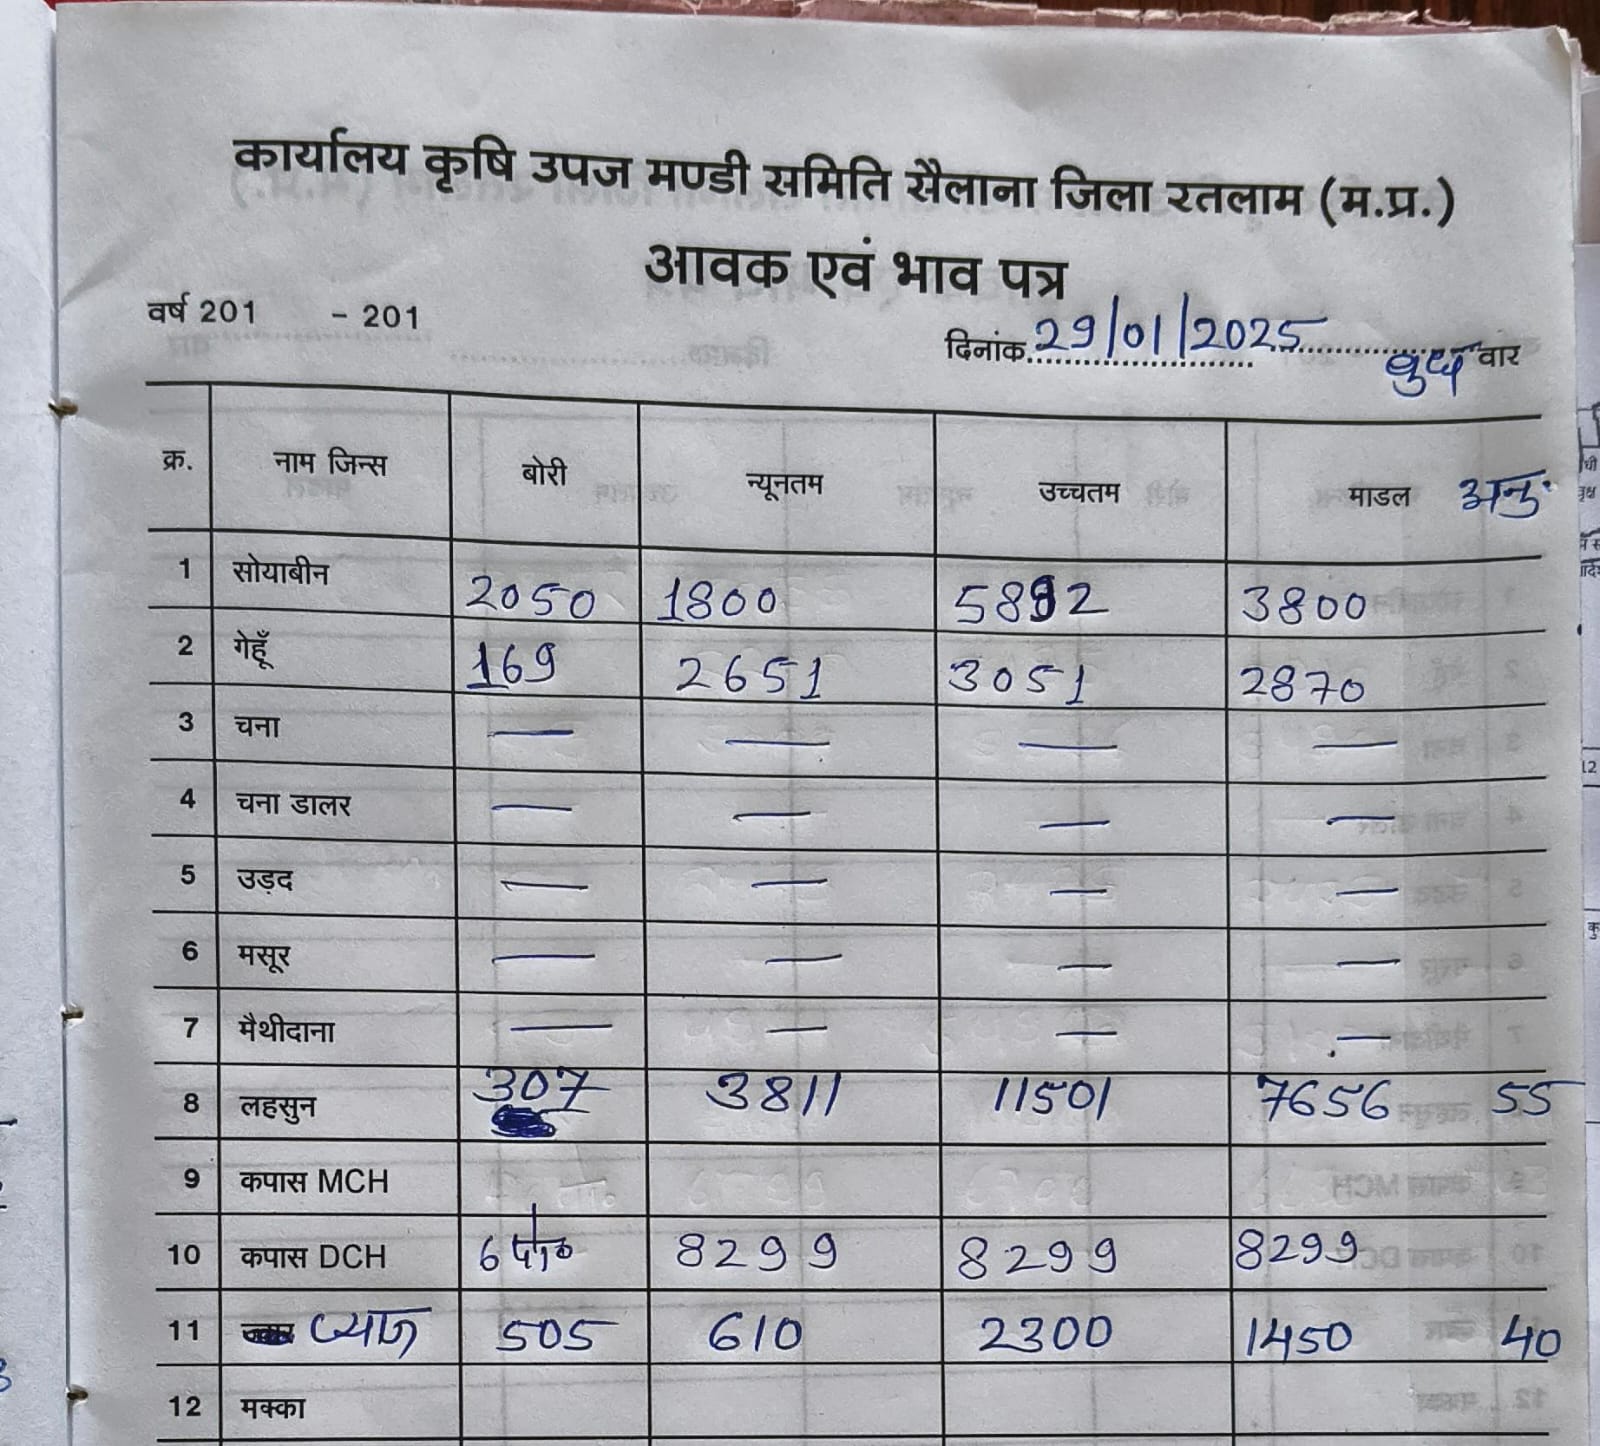 कार्यालय कृषि उपज मण्डी समिति सैलाना जिला रतलाम (म.प्र.)
आवक एवं भाव पत्र
वर्ष 201 - 201
दिनांक 29/01/2025 बुध वार
क्र. नाम जिन्स बोरी न्यूनतम उच्चतम माडल अनु.
1 सोयाबीन 2050 1800 3800
2 गेहूँ 169 2651 3051 2870
3 चना — — — —
4 चना डालर — — — —
5 उड़द — — — —
6 मसूर — — — —
7 मैथीदाना — — — —
8 लहसुन 307 3811 11501 7656 55
9 कपास MCH
10 कपास DCH 6 8299 8299 8299
11 प्याज 505 610 2300 1450 40
12 मक्का